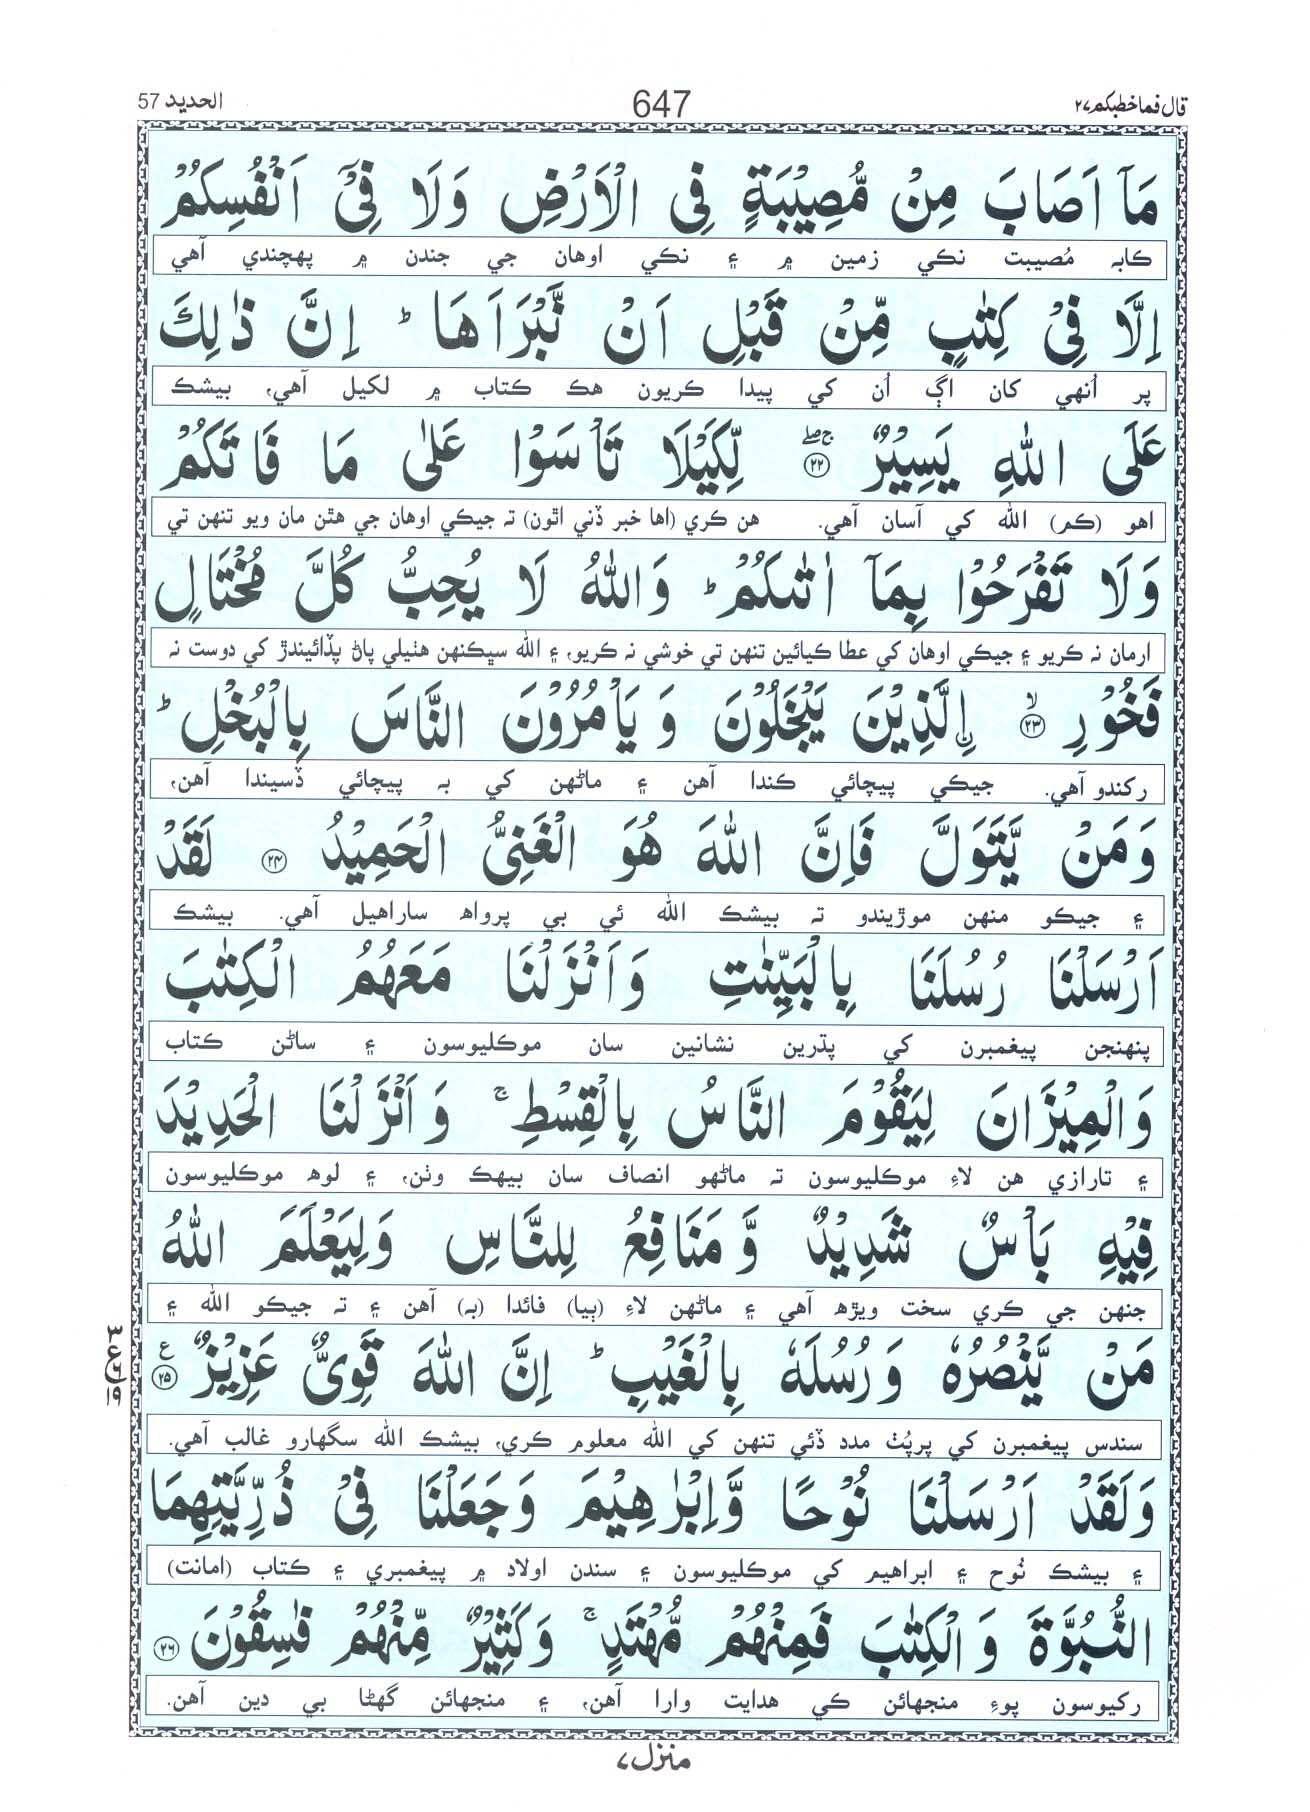 قال فما خطبكم ٢٧
647
الحديد 57
مَآ اَصَابَ مِنْ مُّصِيْبَةٍ فِى الْاَرْضِ وَلَا فِىْٓ اَنْفُسِكُمْ
ڪابہ مُصيبت نڪي زمين ۾ ۽ نڪي اوهان جي جندن ۾ پهچندي آهي
اِلَّا فِىْ كِتٰبٍ مِّنْ قَبْلِ اَنْ نَّبْرَاَهَا ؕ اِنَّ ذٰلِكَ
پر اُنهي کان اڳ اُن کي پيدا ڪريون هڪ ڪتاب ۾ لکيل آهي، بيشڪ
عَلَى اللّٰهِ يَسِيْرٌ ﴿٢٢﴾ لِّكَيْلَا تَاْسَوْا عَلٰى مَا فَاتَكُمْ
اهو (ڪم) الله کي آسان آهي. هن ڪري (اها خبر ڏني اٿون) تہ جيڪي اوهان جي هٿن مان ويو تنهن تي
وَلَا تَفْرَحُوْا بِمَآ اٰتٰىكُمْ ؕ وَاللّٰهُ لَا يُحِبُّ كُلَّ مُخْتَالٍ
ارمان نہ ڪريو ۽ جيڪي اوهان کي عطا ڪيائين تنهن تي خوشي نہ ڪريو، ۽ الله سڀڪنهن هٺيلي پاڻ پڏائيندڙ کي دوست نہ
فَخُوْرِ ﴿٢٣﴾ اِۨلَّذِيْنَ يَبْخَلُوْنَ وَيَاْمُرُوْنَ النَّاسَ بِالْبُخْلِ ؕ
رکندو آهي. جيڪي پيچائي ڪندا آهن ۽ ماڻهن کي بہ پيچائي ڏسيندا آهن،
وَمَنْ يَّتَوَلَّ فَاِنَّ اللّٰهَ هُوَ الْغَنِىُّ الْحَمِيْدُ ﴿٢٤﴾ لَقَدْ
۽ جيڪو منهن موڙيندو تہ بيشڪ الله ئي بي پرواھ ساراهيل آهي. بيشڪ
اَرْسَلْنَا رُسُلَنَا بِالْبَيِّنٰتِ وَاَنْزَلْنَا مَعَهُمُ الْكِتٰبَ
پنهنجن پيغمبرن کي پڌرين نشانين سان موڪليوسون ۽ ساڻن ڪتاب
وَالْمِيْزَانَ لِيَقُوْمَ النَّاسُ بِالْقِسْطِ ۚ وَاَنْزَلْنَا الْحَدِيْدَ
۽ تارازي هن لاءِ موڪليوسون تہ ماڻهو انصاف سان بيهڪ وٺن، ۽ لوھ موڪليوسون
فِيْهِ بَاْسٌ شَدِيْدٌ وَّمَنَافِعُ لِلنَّاسِ وَلِيَعْلَمَ اللّٰهُ
جنهن جي ڪري سخت ويڙھ آهي ۽ ماڻهن لاءِ (ٻيا) فائدا (بہ) آهن ۽ تہ جيڪو الله ۽
مَنْ يَّنْصُرُهٗ وَرُسُلَهٗ بِالْغَيْبِ ؕ اِنَّ اللّٰهَ قَوِىٌّ عَزِيْزٌ ﴿٢٥﴾ ع
سندس پيغمبرن کي پرپُٺ مدد ڏئي تنهن کي الله معلوم ڪري، بيشڪ الله سگهارو غالب آهي.
وَلَقَدْ اَرْسَلْنَا نُوْحًا وَّاِبْرٰهِيْمَ وَجَعَلْنَا فِىْ ذُرِّيَّتِهِمَا
۽ بيشڪ نُوح ۽ ابراهيم کي موڪليوسون ۽ سندن اولاد ۾ پيغمبري ۽ ڪتاب (امانت)
النُّبُوَّةَ وَالْكِتٰبَ فَمِنْهُمْ مُّهْتَدٍ ۚ وَكَثِيْرٌ مِّنْهُمْ فٰسِقُوْنَ ﴿٢٦﴾
رکيوسون پوءِ منجهائن ڪي هدايت وارا آهن، ۽ منجهائن گهڻا بي دين آهن.
منزل ٧